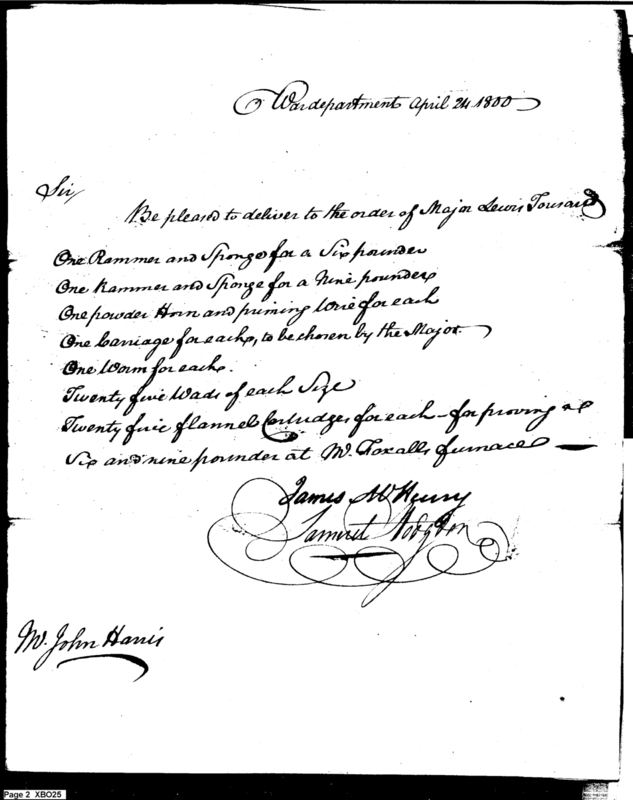 War department April 24 1800
Sir,
Be pleased to deliver to the order of Major Lewis Tousard
One Rammer and Sponge for a Six pounder
One Rammer and Sponge for a Nine pounder
One powder Horn and priming Wire for each
One Carriage for each, to be chosen by the Major.
One Worm for each.
Twenty five Wads of each Size
Twenty five flannel Cartridges for each - for proving a
Six and nine pounder at Mr. Foxalls furnace
James McHenry
Samuel Hodgdon
Mr. John Harris
Page 2 XBO25